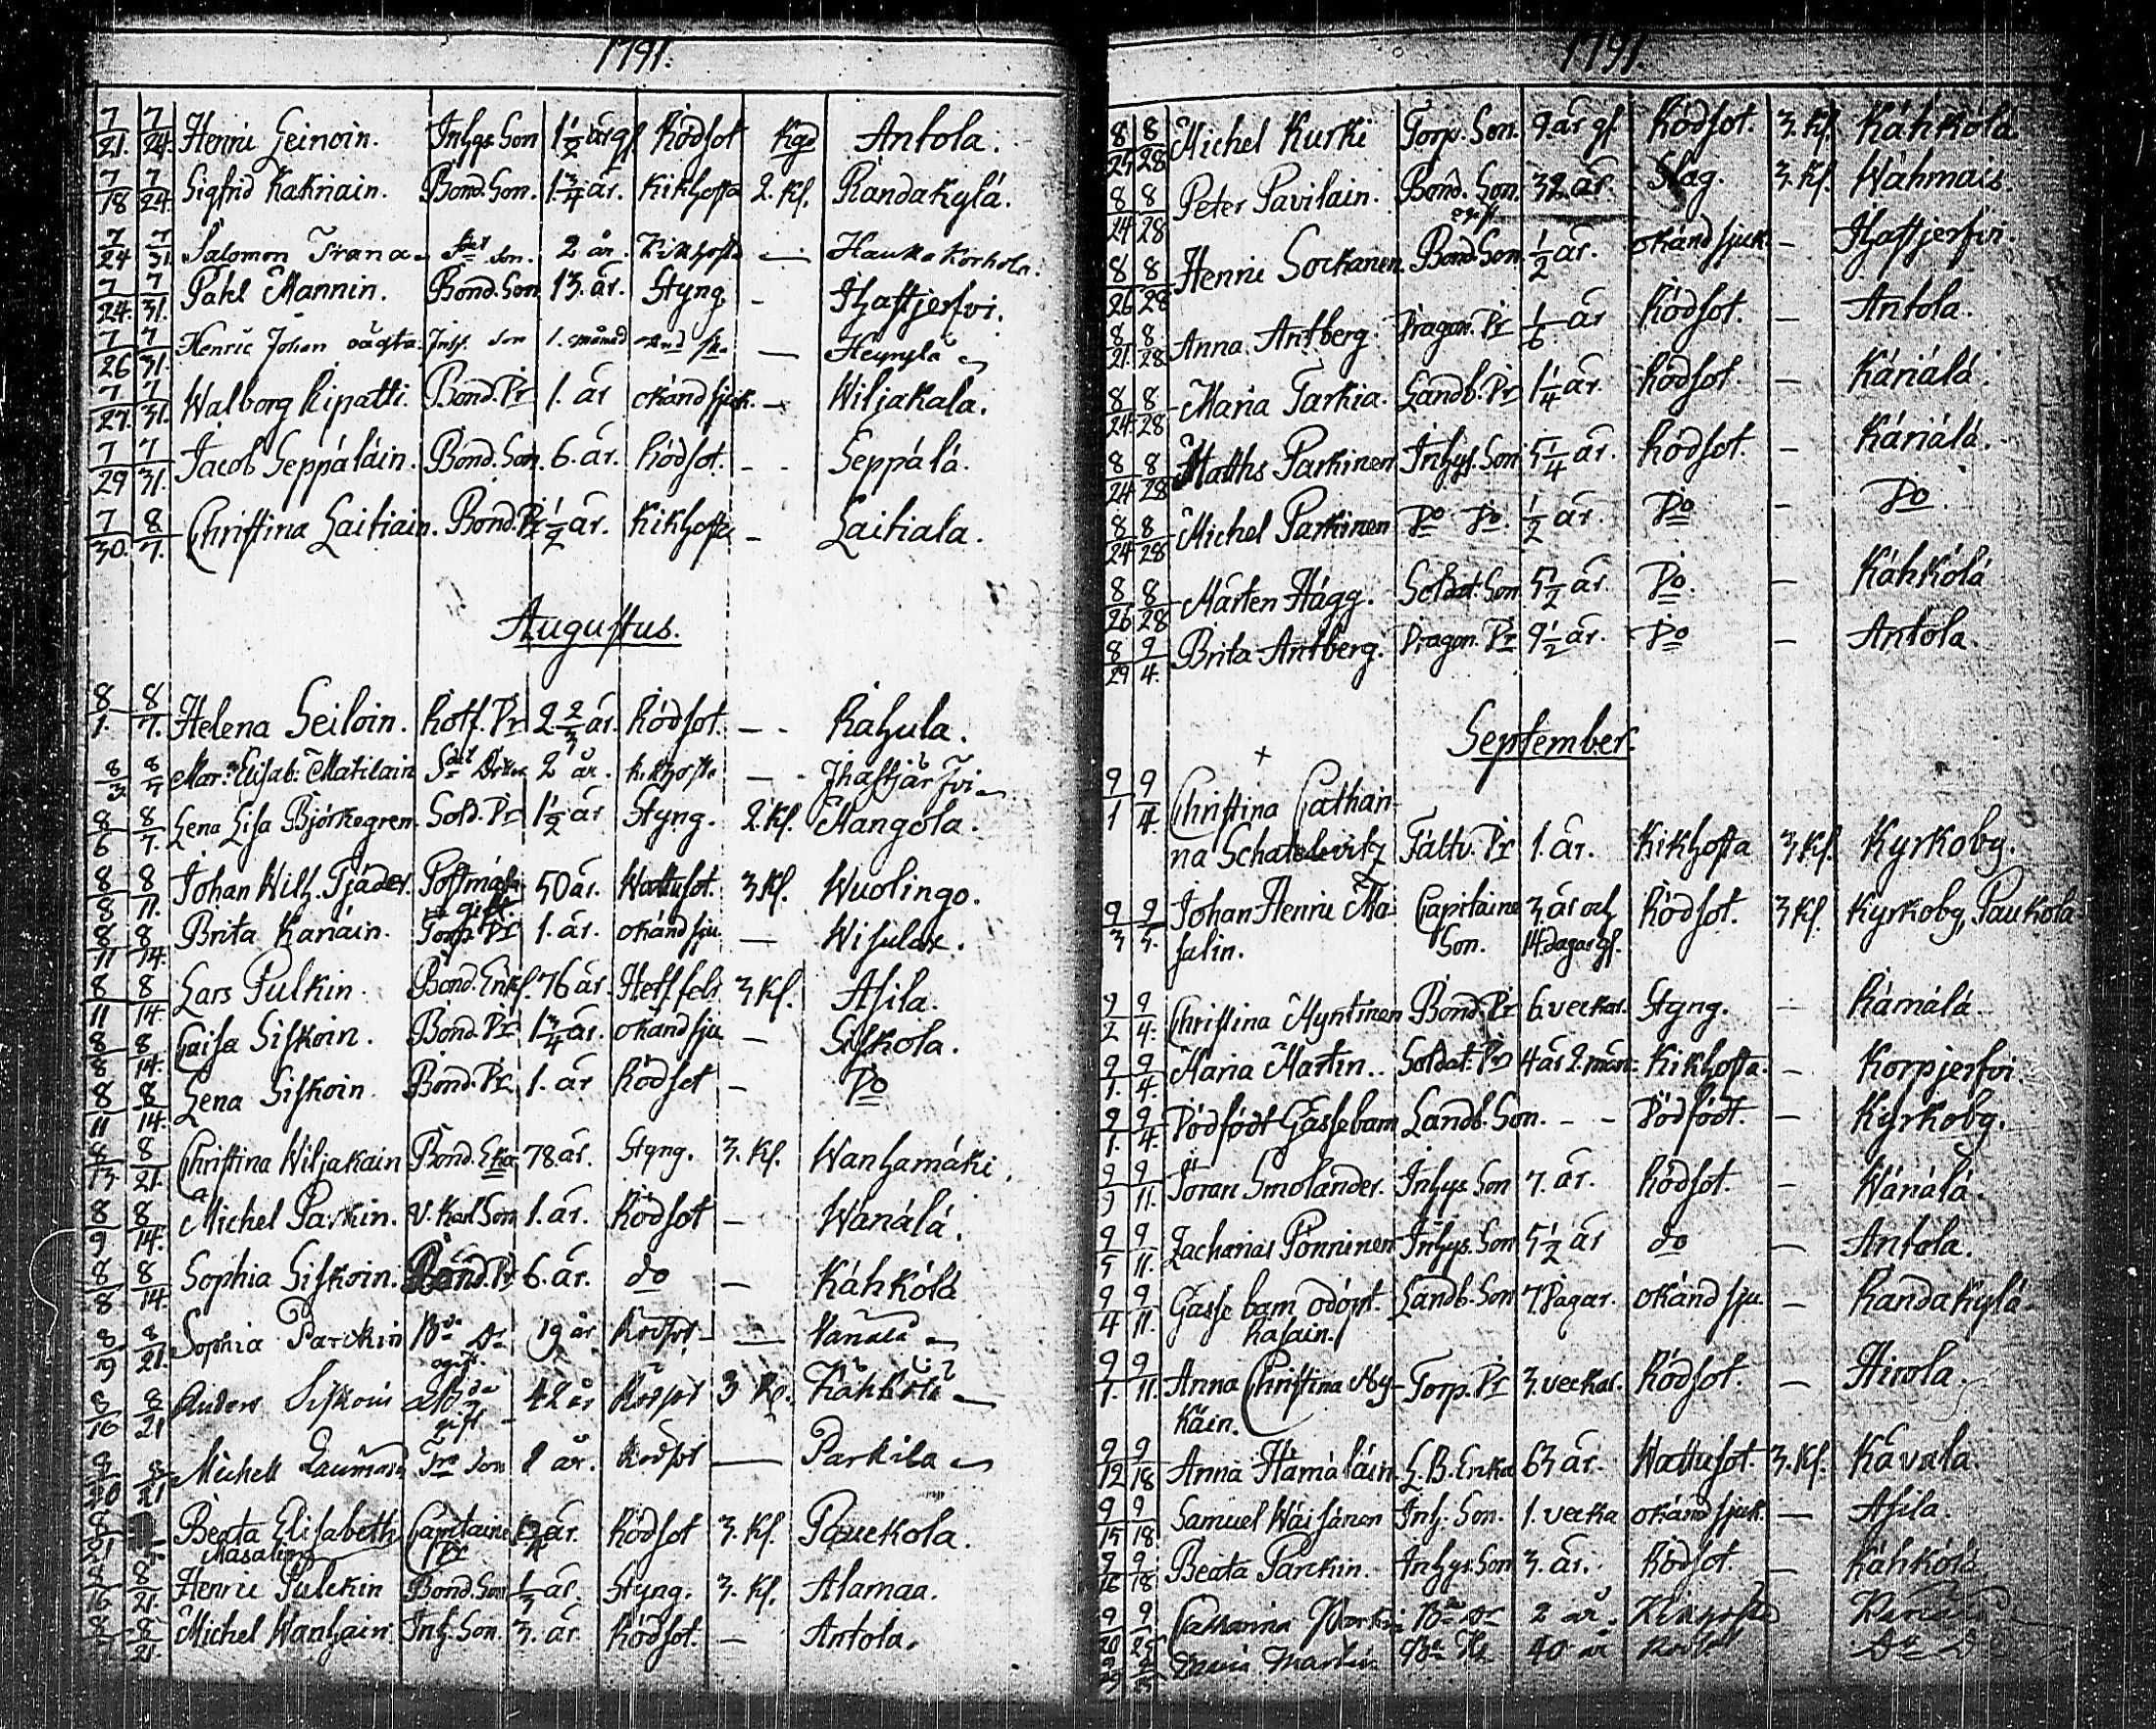 1791.
7/21. 7/24. Henric Leinoin. Inhys Son 1 1/2 år gl. Rödsot Kgd Antola.
7/18 7/24. Sigfrid Kaknain. Bond. Son. 1 3/4 år. Kikhosta 2. Kl. Randakylä.
7/24 7/31 Salomon Son. 2 år. Kikhosta — Haukakorhola.
7/24. 7/31. Påhl Mannin. Bond. Son 13. år. Styng - Ihastjerfvi.
7/26 7/31. Henric Johan Son 1. månad —
7/27. 7/31. Walborg Ripatti. Bond. Dr 1. år okänd sjuk. - Wiljakala.
7/29 7/31. Jacob Seppäläin. Bond. Son. 6. år. Rödsot. - - Seppälä.
7/30. 8/7. Christina Laitiain. Bond. Dr 1/2 år. Kikhosta - Laitiala.
Augustus.
8/1. 8/7. Helena Seiloin. Rotf. Dr 2 2/3 år. Rödsot. - - Rahula.
8/3 8/7 Mar: Elisab: Matilain 2 år. kikhosta — Ihastjärfvi
8/6 8/7. Lena Lisa Björkegren Sold. Dr 1 1/2 år Styng. 2. Kl. Mangola.
8/8 8/11. Johan Wilh. Tjäder. Postmäst. gift. 50 år. Wattusot. 3 Kl. Wuolingo.
8/11 8/14. Brita Kariäin. Torp. Dr 1. år. okänd sju — Wisulax.
8/11 8/14. Lars Pulkin. Bond. Enkl. 76 år. Hett. feb. 3 Kl. Asila.
8/8 8/14. Caisa Siskoin. Bond. Dr 1 3/4 år. okänd sju — Siskola.
8/11 8/14. Lena Siskoin. Bond. Dr. 1. år Rödsot - Do
8/13. 8/21. Christina Wiljakain Bond. Eka 78. år. Styng. 3. Kl. Wanhamäki.
8/9 8/14. Michel Parkin. Son 1. år. Rödsot — Wänälä.
8/8 8/14. Sophia Siskoin. Bond. Dr 6. år. do — Kähkölä
8/19 8/21. Sophia Parckin ogift. 19 år Rödsot — Vänälä
8/16 8/21 Anders Siskoin gift 42 år Rödsot 3 Kl. Kähkölä
8/20 8/21 Michell Son år. Rödsot — Parkila
8/21 Beata Elisabeth Masalin Capitaine Dr år. Rödsot 3. Kl. Pauckola.
8/16 8/21. Henric Pulckin Bond. Son 1/3 år. Styng. 3. Kl. Alamaa.
8/21. Michel Wanhain. Inh. Son. 3. år. Rödsot. — Antola.
1791.
8/25 8/28 Michel Kurki Torp. Son. 9. år gl. Rödsot. 3. Kl. Kähkölä.
8/24 8/28 Peter Pavilain. Bond. Son. ogift 32. år. Slag. 3. Kl. Wähmais.
8/26 8/28 Henric Sockanen. Bond. Son. 1/2 år. okänd sjuk. — Ihastjerfvi.
8/21. 8/28 Anna Antberg. Dragon. Dr 1/6 år Rödsot. — Antola.
8/24. 8/28 Maria Tarkia. Landb. Dr 1 1/4 år. Rödsot. — Käriälä.
8/24 8/28 Matths Parkinen Inhys. Son 5 1/4 år. Rödsot. — Käriälä.
8/24 8/28 Michel Parkinen Do Do. 1/2 år. Do - Do.
8/26 8/28 Mårten Hägg. Soldat. Son 5 1/2 år. Do. — Kähkölä
8/29 9/4. Brita Antberg. Dragon. Dr 9 1/2 år. Do — Antola.
September.
9/1 9/4. Christina Cathari-
na Schatelovitz Fältv. Dr 1. år. Kikhosta 3 Kl. Kyrkoby.
9/3 9/5. Johan Henric Ma- Capitaine 3 år och Rödsot. 3 Kl. Kyrkoby, Paukola
salin. Son. 14. dagar gl.
9/2 9/4. Christina Myntinen Bond. Dr 6. veckor. Styng. — Rämälä.
9/1. 9/4. Maria Martin. Soldat. Dr 4 år 2. mån: Kikhosta. - Korpjerfvi.
9/1. 9/4. Dödfödt Gässebarn Landb. Son. - - Dödfödt. — Kyrkoby.
9/9 9/11. Jöran Smolander. Inhys Son 7. år. Rödsot. - Wänälä.
9/5 9/11. Zacharias Pönninen Inhys. Son 5 1/2 år do — Antola.
9/4 9/11. Gässe barn odöpt. Landb. Son 7 Dagar. okänd sju. — Randakylä.
Kasain.
9/7. 9/11. Anna Christina Ny- Torp. Dr 3. veckor. Rödsot. — Hirola.
käin.
9/12 9/18 Anna Hämäläin. L. B. Enka 63 år. Wattusot. 3. Kl. Kavala.
9/15 9/18. Samuel Wäisänen Inh: Son. 1. vecka okänd sjuk. — Asila.
9/16 9/18 Beata Parckin. Inhys Son 3. år. Rödsot. — Kähkölä
9/20 9/25 Catharina 2 år. Kikhosta
Martin 40 år